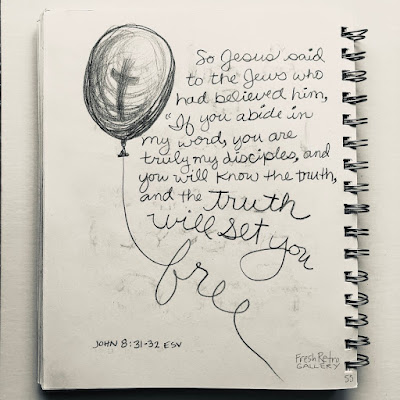 So Jesus said
to the Jews who
had believed him,
"If you abide in
my word, you are
truly my disciples, and
you will know the truth,
and the truth
will set you
free
JOHN 8:31-32 ESV
FreshRetro
GALLERY
55